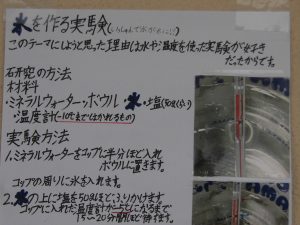 氷を作る実験(いっしゅんでできること!!)
このテーマにしようと思った理由は水や温度を使った実験が好き
だったからです。
研究の方法
材料
・ミネラルウォーター・ボウル・氷・塩(50gくらい)
・温度計(-10℃まではかれるもの)
実験方法
1.ミネラルウォーターをコップに半分ほど入れ
ボウルに置きます。
コップの周りに氷を入れます。
2.氷の上に塩を50gほどふりかけます。
コップに入れた温度計が-5℃になるまで
15〜20分間ほど待ちます。